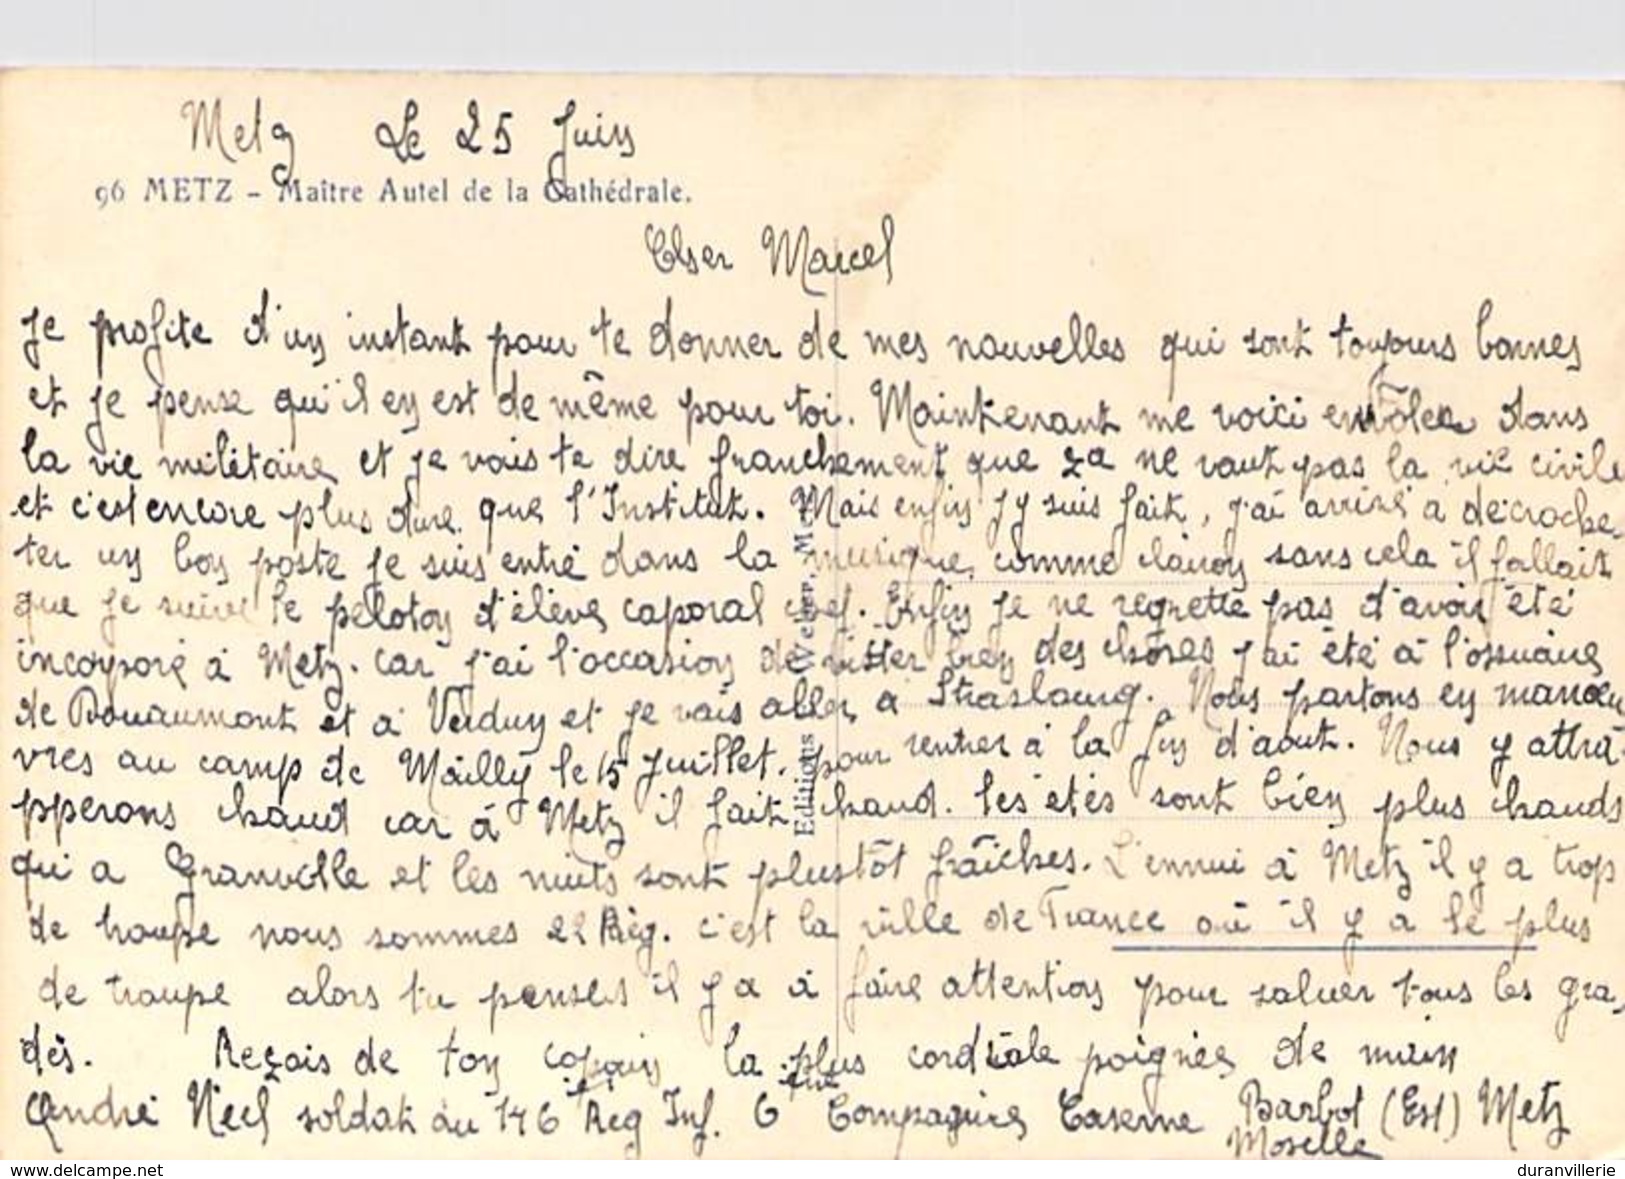 Metz Le 25 Juin
96 METZ - Maître Autel de la Cathédrale.
Cher Marcel
Je profite d'un instant pour te donner de mes nouvelles qui sont toujours bonnes
et je pense qu'il en est de même pour toi. Maintenant me voici dans
la vie militaire et je vais te dire franchement que za ne vaut pas la vie civile
et c'est encore plus dure que l'Institut. Mais enfin j'y suis fait, j'ai arrivé a décroche-
ter un bon poste je suis entré dans la musique comme clairon sans cela il fallait
que je suive le peloton d'élève caporal chef. Enfin je ne regrette pas d'avoir été
incorporé à Metz. car j'ai l'occasion de visiter bien des choses j'ai été à l'ossuaire
de Douaumont et à Verdun et je vais aller a Strasbourg. Nous partons en manœu
vres au camp de Mailly le 15 juillet. pour rentrer à la fin d'aout. Nous y attra-
pperons chaud car à Metz il fait chaud. les étés sont bien plus chauds
qui a Granville et les nuits sont plustôt fraîches. L'ennui à Metz il y a trop
de troupe nous sommes 22 Rég. c'est la ville de France où il y a le plus
de troupe alors tu penses il y a à faire attention pour saluer tous les gra-
dés. Reçois de ton copain la plus cordiale poignée de main
André Néel soldat au 146 e Rég Inf. 6 eme Compagnie Caserne Barbot (Est) Metz
Moselle
Editions Weber, Metz
www.delcampe.net
duranvillerie